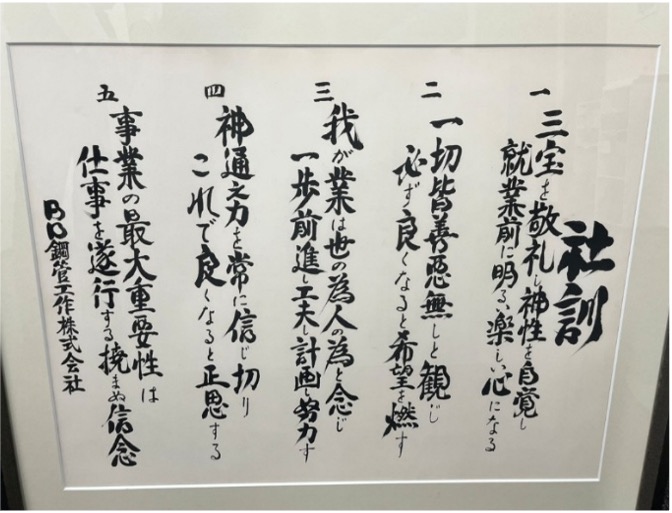 社訓
一 三宝を敬礼し神性を自覚し
就業前に明るい楽しい心になる
二 一切皆善悪無しと観じ
必ず良くなると希望を燃す
三 我が業は世の為人の為と念じ
一歩前進し工夫し計画し努力す
四 神通之力を常に信じ切り
これで良くなると正思する
五 事業の最大重要性は
仕事を遂行する撓まぬ信念
BD鋼管工作株式会社